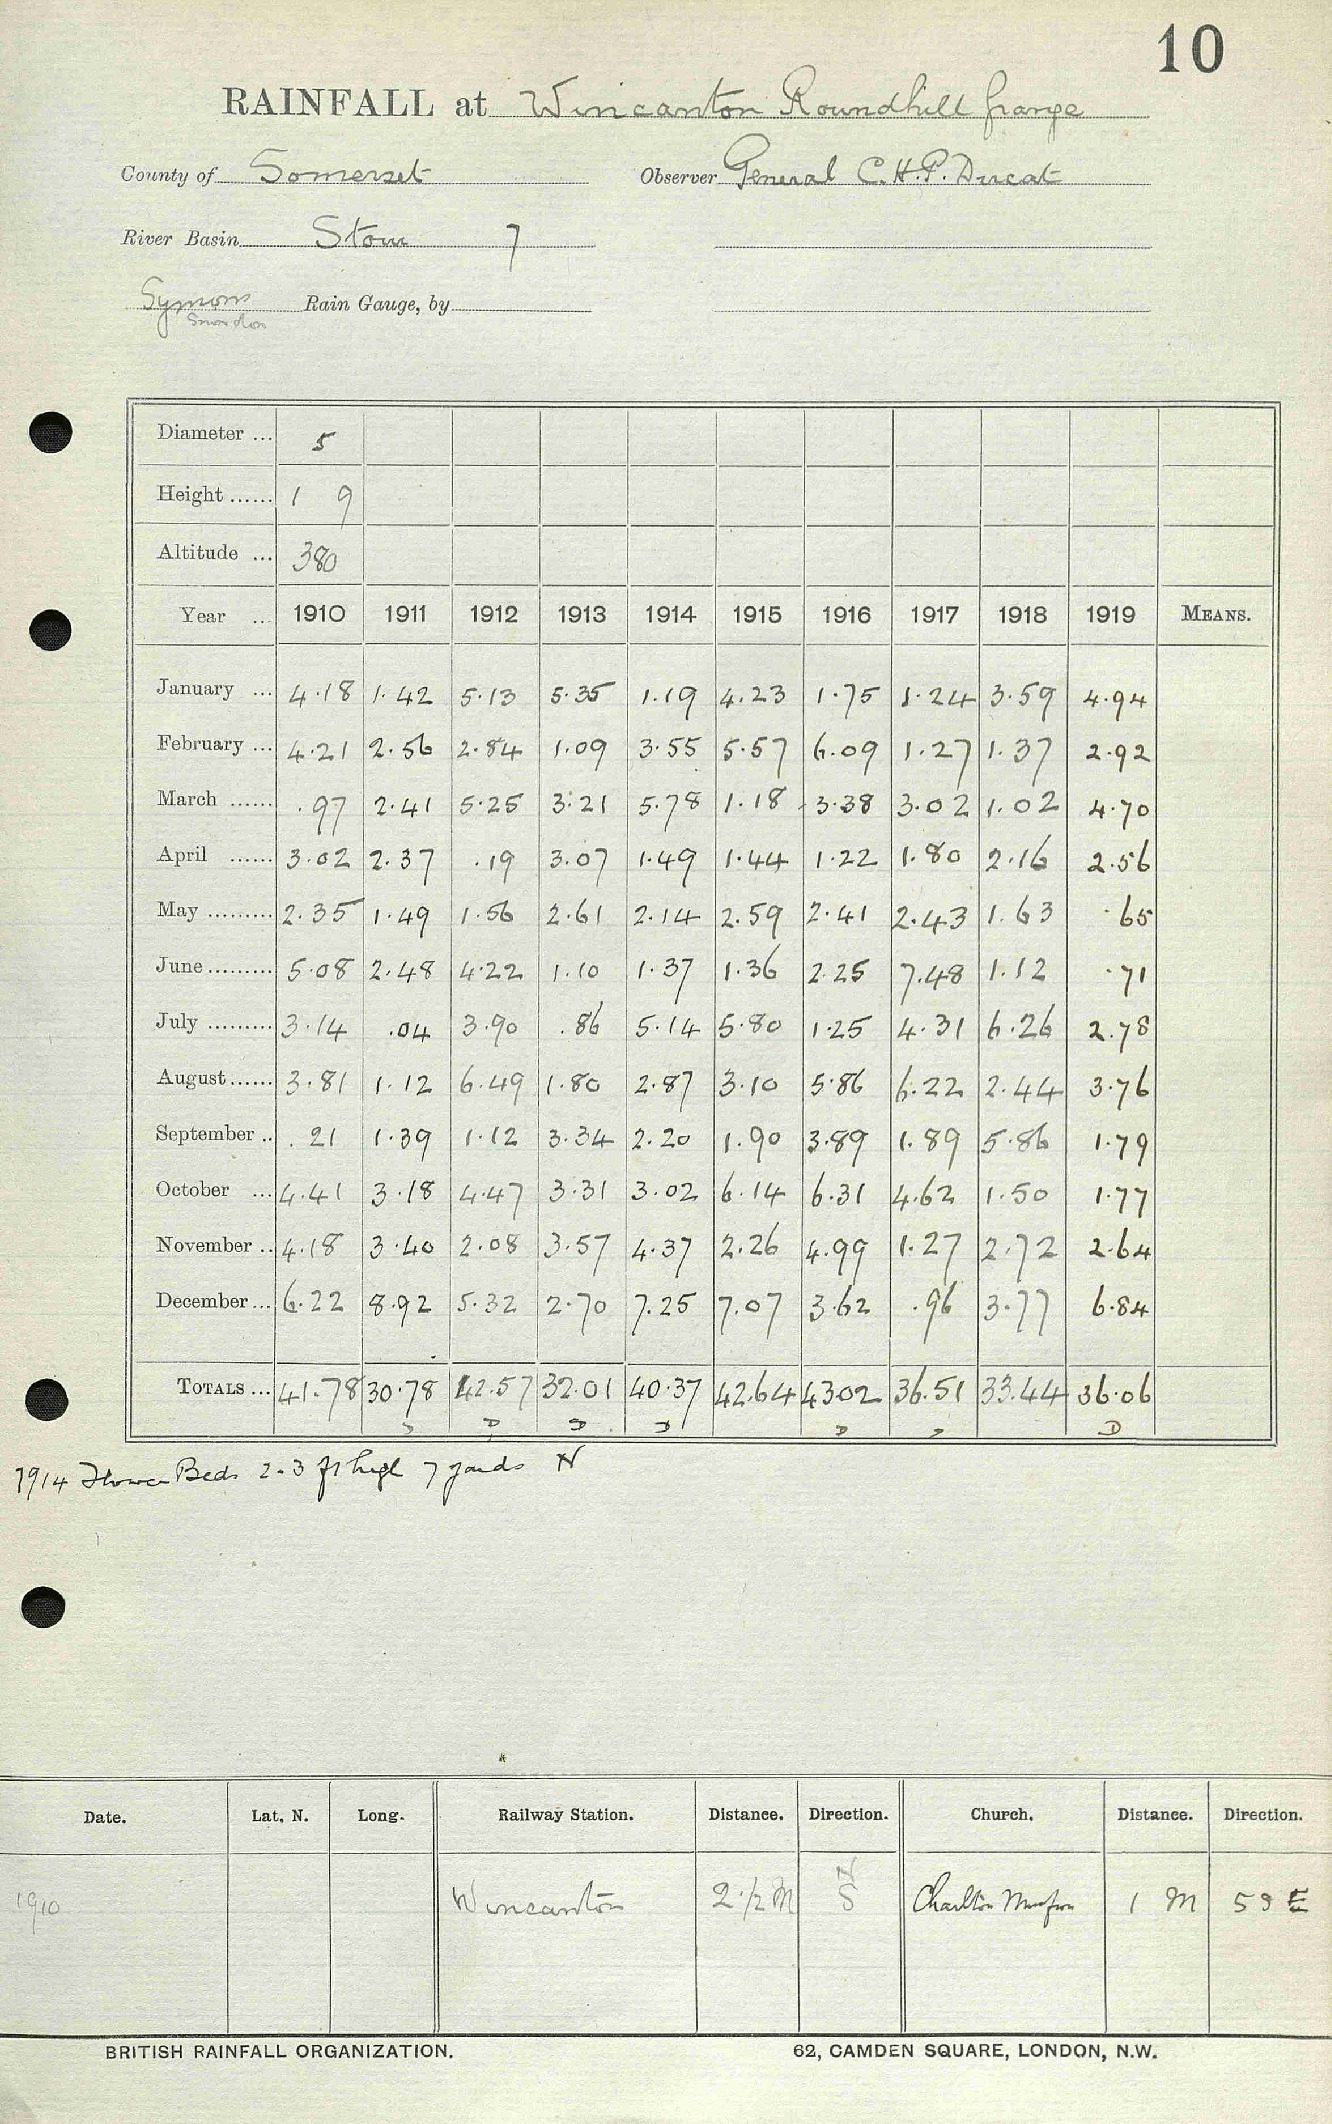 10
RAINFALL at Wincanton Roundhill Grange
County of Somerset Observer General C.H.P. Ducat
River Basin Stour 7
Symons Rain Gauge, by
Snowdon
Diameter ... 5
Height ...... 1 9
Altitude ... 380
Year ... 1910 1911 1912 1913 1914 1915 1916 1917 1918 1919 MEANS.
January ... 4.18 1.42 5.13 5.35 1.19 4.23 1.75 1.24 3.59 4.94
February ... 4.21 2.56 2.84 1.09 3.55 5.57 6.09 1.27 1.37 2.92
March ...... .97 2.41 5.25 3.21 5.78 1.18 3.38 3.02 1.02 4.70
April ...... 3.02 2.37 .19 3.07 1.49 1.44 1.22 1.80 2.16 2.56
May ......... 2.35 1.49 1.56 2.61 2.14 2.59 2.41 2.43 1.63 .65
June ......... 5.08 2.48 4.22 1.10 1.37 1.36 2.25 7.48 1.12 .71
July ......... 3.14 .04 3.90 .86 5.14 5.80 1.25 4.31 6.26 2.78
August ...... 3.81 1.12 6.49 1.80 2.87 3.10 5.86 6.22 2.44 3.76
September .. .21 1.39 1.12 3.34 2.20 1.90 3.89 1.89 5.86 1.79
October ... 4.41 3.18 4.47 3.31 3.02 6.14 6.31 4.62 1.50 1.77
November .. 4.18 3.40 2.08 3.57 4.37 2.26 4.99 1.27 2.72 2.64
December ... 6.22 8.92 5.32 2.70 7.25 7.07 3.62 .96 3.77 6.84
TOTALS ... 41.78 30.78 42.57 32.01 40.37 42.64 43.02 36.51 33.44 36.06
D D D D D D D
1914 Flower Beds 2-3 ft high 7 yards N
Date. Lat. N. Long. Railway Station. Distance. Direction. Church. Distance. Direction.
1910 Wincanton 2 1/2 M N S Charlton 1 M E
BRITISH RAINFALL ORGANIZATION. 62, CAMDEN SQUARE, LONDON, N.W.